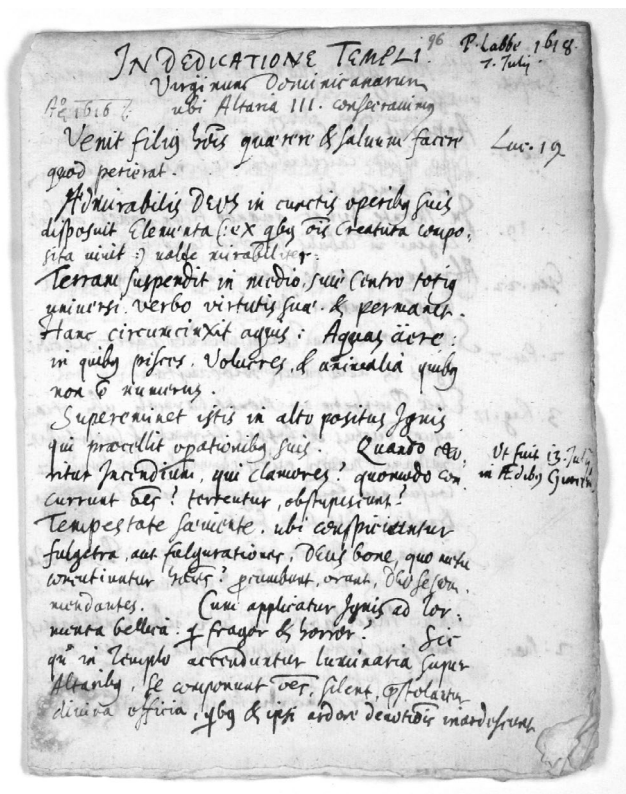 IN DEDICATIONE TEMPLI. 96 P. Labbe 1618.
7. Julij
Virginum Dominicanarum
Aº 1616
ubi Altaria III. consecravimus
Venit filius hois quærere & salvum facere Luc. 19
quod perierat.
Admirabilis DEUS in cunctis operibus suis
disposuit Elementa (: ex qbus ois Creatura compo-
sita vivit :) valde mirabiliter:
Terram suspendit in medio, sive Centro totius
universi. verbo virtutis suæ. & permanet.
Hanc circumcinxit aquis: Aquas äere:
in quibus pisces. Volucres, & animalia quibus
non ē numerus.
Supereminet istis in alto positus Ignis
qui præcellit opationibus suis. Quando exo- Ut fuit 13. Julij
ritur Incendium, qui clamores? quomodo con- in Ædibus
currunt oes? terrentur, obstupescunt?
Tempestate sæviente, ubi conspiciuntur
fulgetra, aut fulgurationes, DEUS bone, quo metu
concutiuntur hoies? pcumbunt, orant, Deo se com-
mendantes. Cum applicatur Ignis ad tor-
menta bellica. q fragor & horror? Sic
qn in Templo accenduntur luminaria super
Altaribus, se componunt oes, silent, pstolantur
divina officia, qbus & ipsi ardore devotiois inardescunt